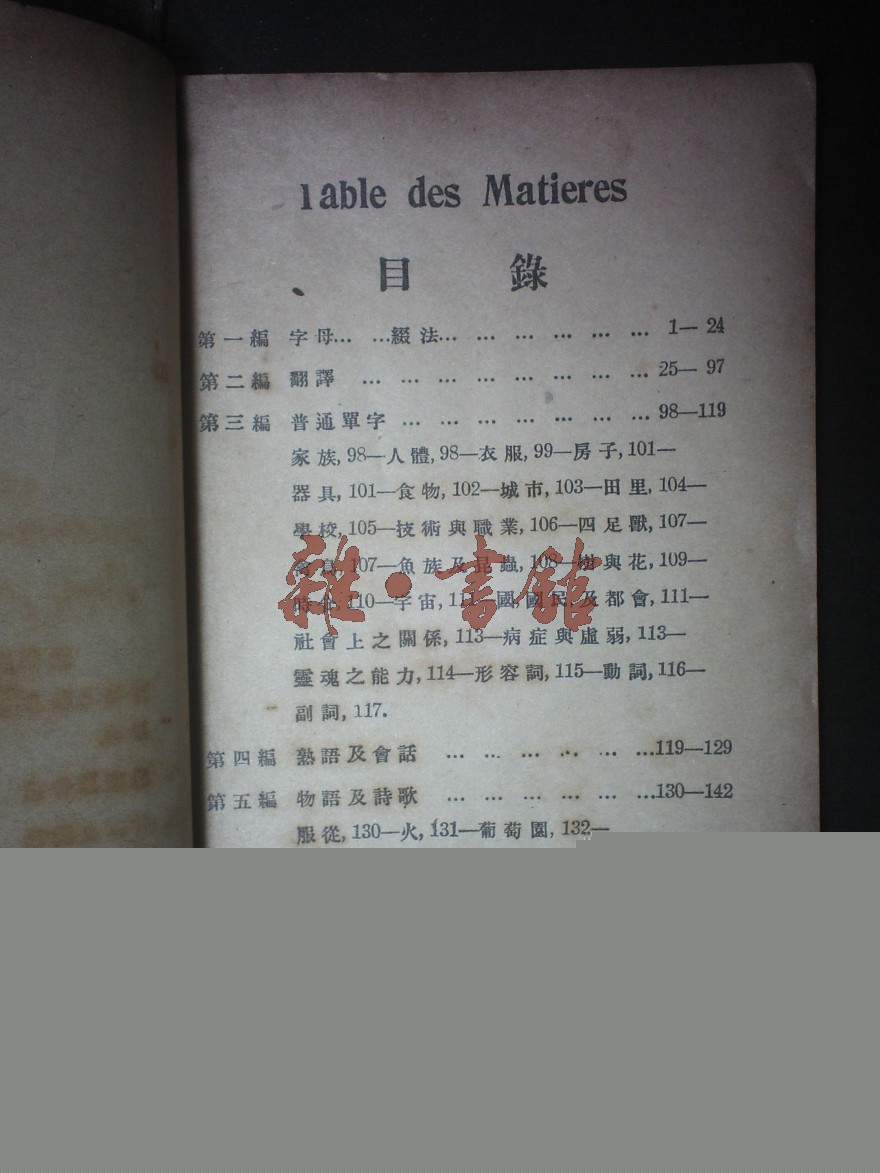 Table des Matieres
目 錄
第一編 字母… …綴法… … … … … … 1—24
第二編 翻譯 … … … … … … … … 25—97
第三編 普通單字 … … … … … … … 98—119
家族, 98—人體, 98—衣服, 99—房子, 101—
器具, 101—食物, 102—城市, 103—田里, 104—
學校, 105—技術與職業, 106—四足獸, 107—
107—魚族及昆蟲, 108—樹與花, 109—
110—宇宙, 111—國 國民 及都會, 111—
社會上之關係, 113—病症與虛弱, 113—
靈魂之能力, 114—形容詞, 115—動詞, 116—
副詞, 117.
第四編 熟語及會話 … … … … … …119—129
第五編 物語及詩歌 … … … … … …130—142
服從, 130—火, 131—葡萄園, 132—
雜·書館